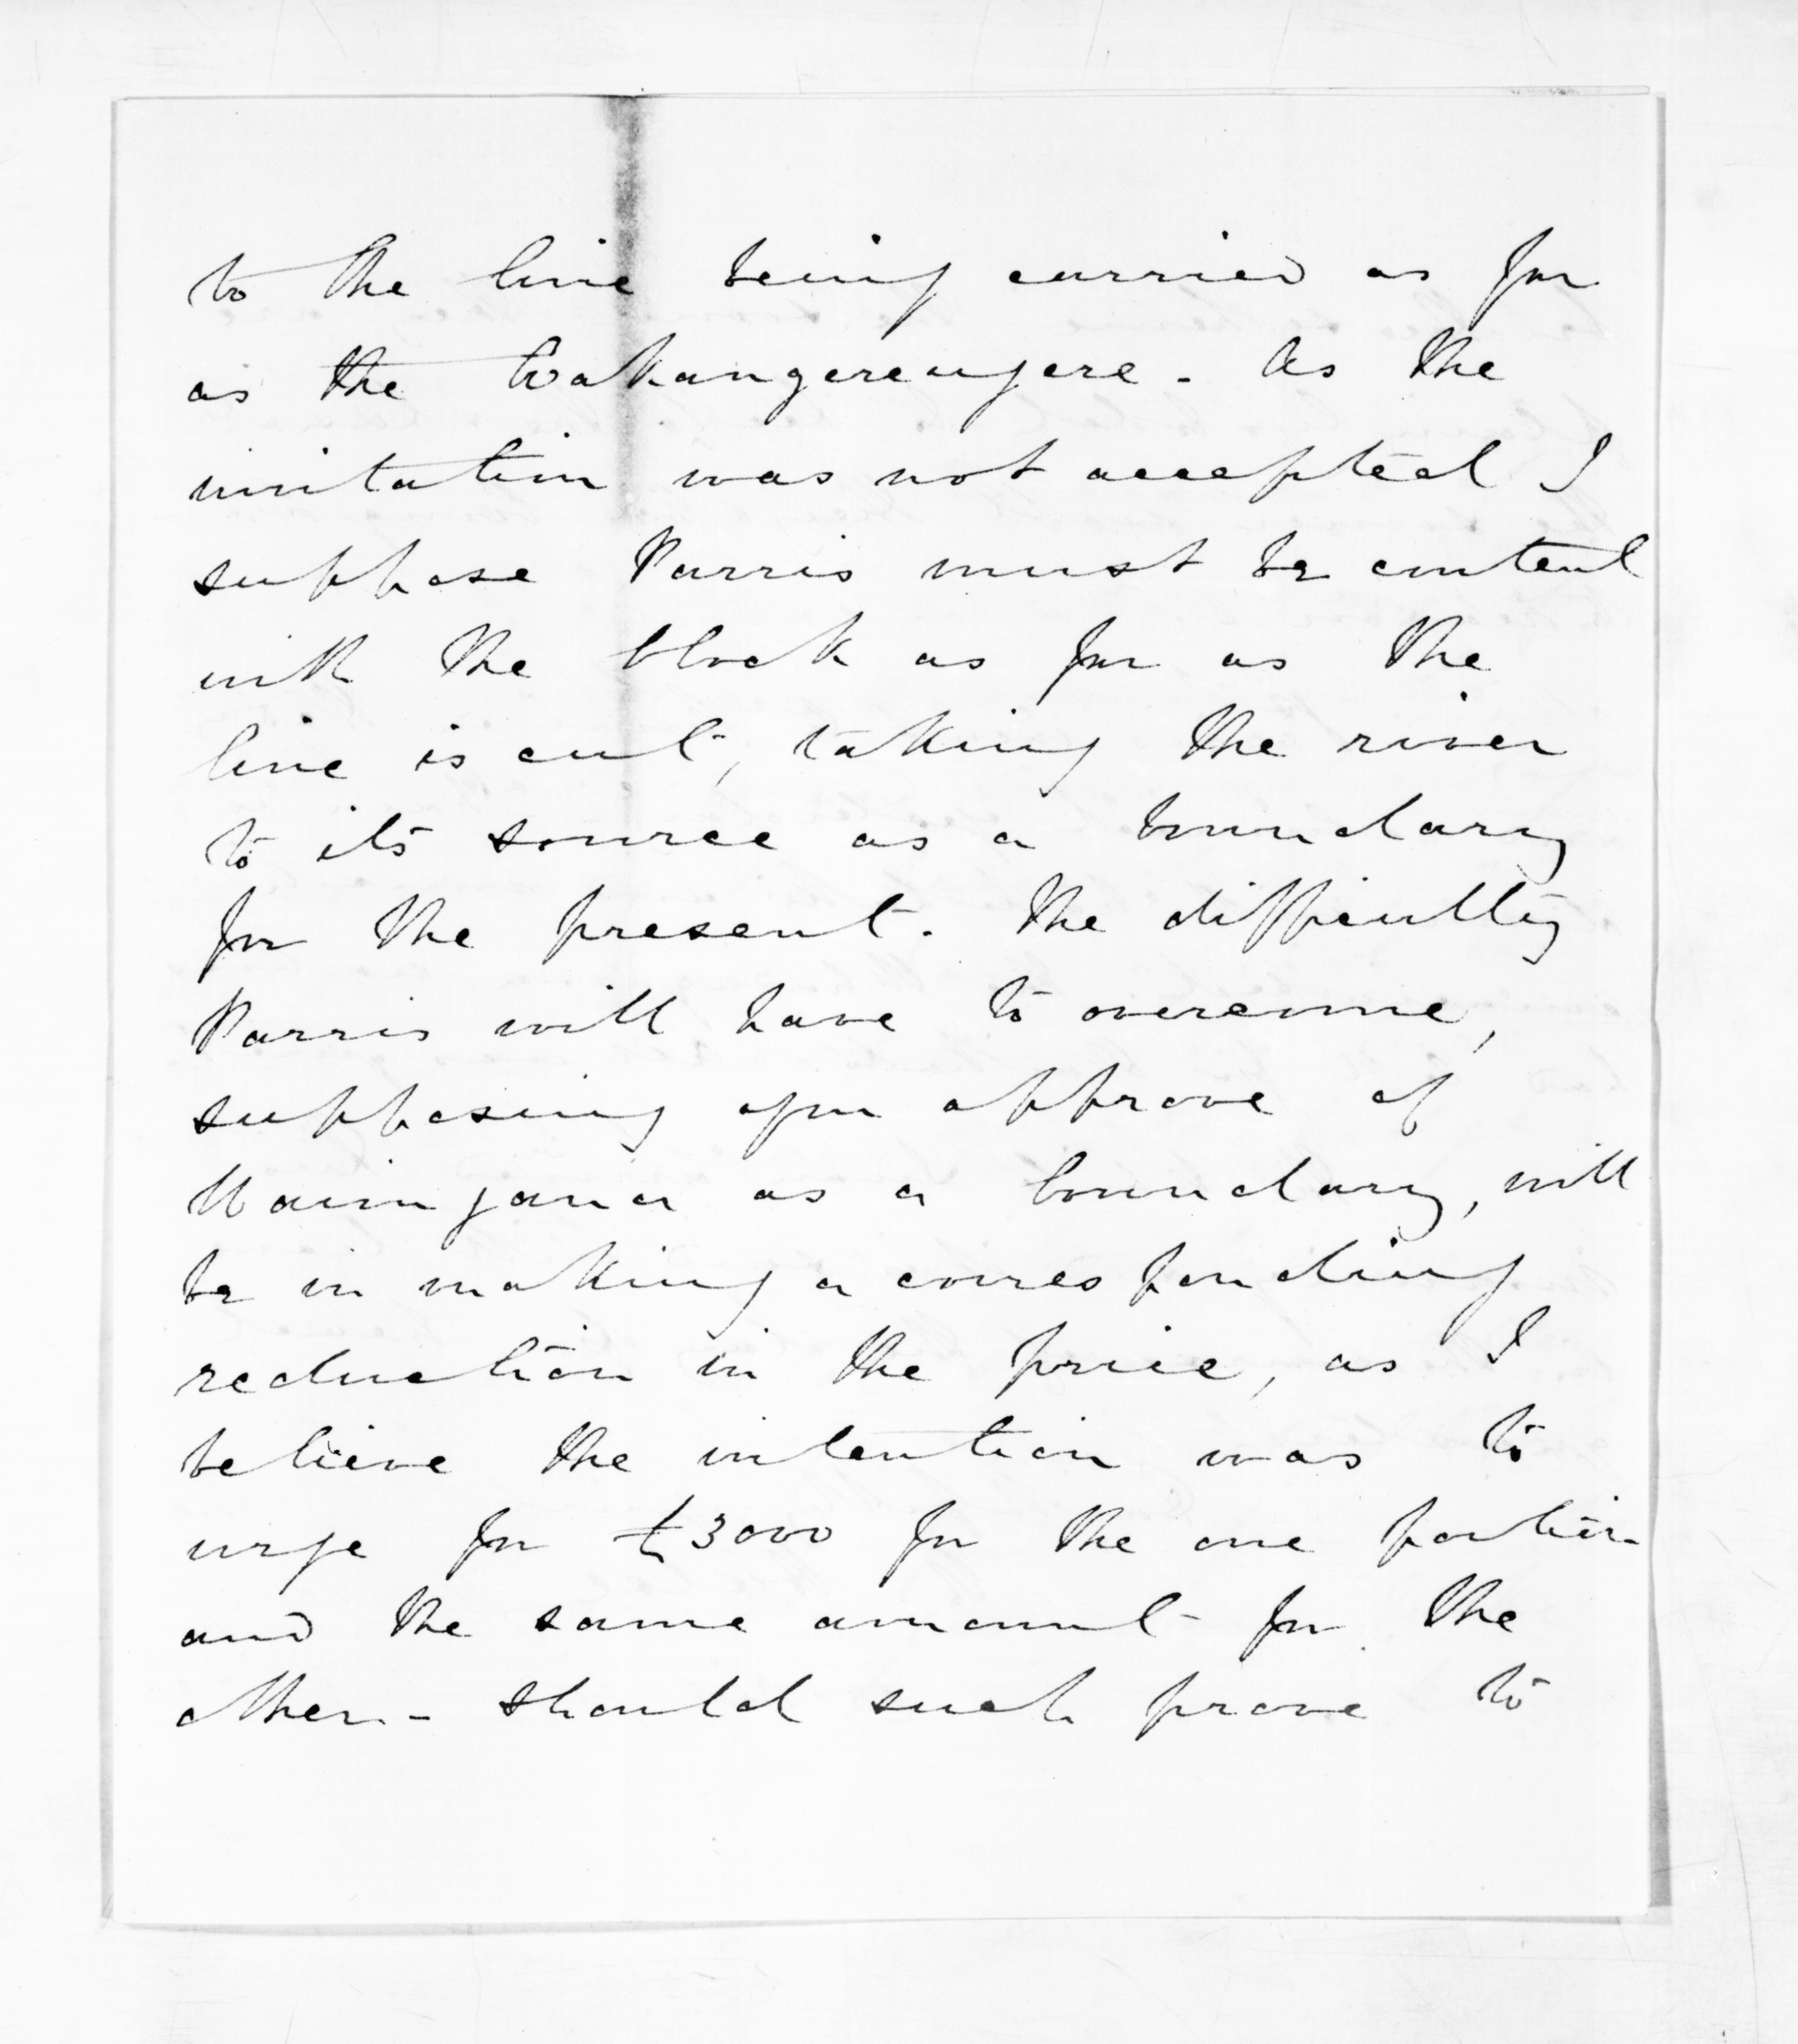 to the line being carried as far
as the Wakangerengere - As the
invitation was not accepted I
suppose Parris must be content
with the block as far as the
line is cut, taking the river
to its source as a boundary
for the present. The difficulty
Parris will have to overcome,
supposing you approve of
Waingana as a boundary, will
be in making a corresponding
reduction in the price, as I
believe the intention was to
urge for £3000 for the one portion
and the same amount for the
other - should such prove to